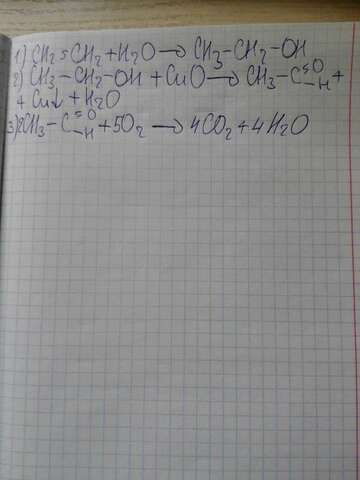 1) CH2=CH2+H2O → CH3-CH2-OH
2) CH3-CH2-OH+CuO → CH3-C=O-H+
+ Cu↓ + H2O
3) 2CH3-C=O-H+5O2 → 4CO2+4H2O